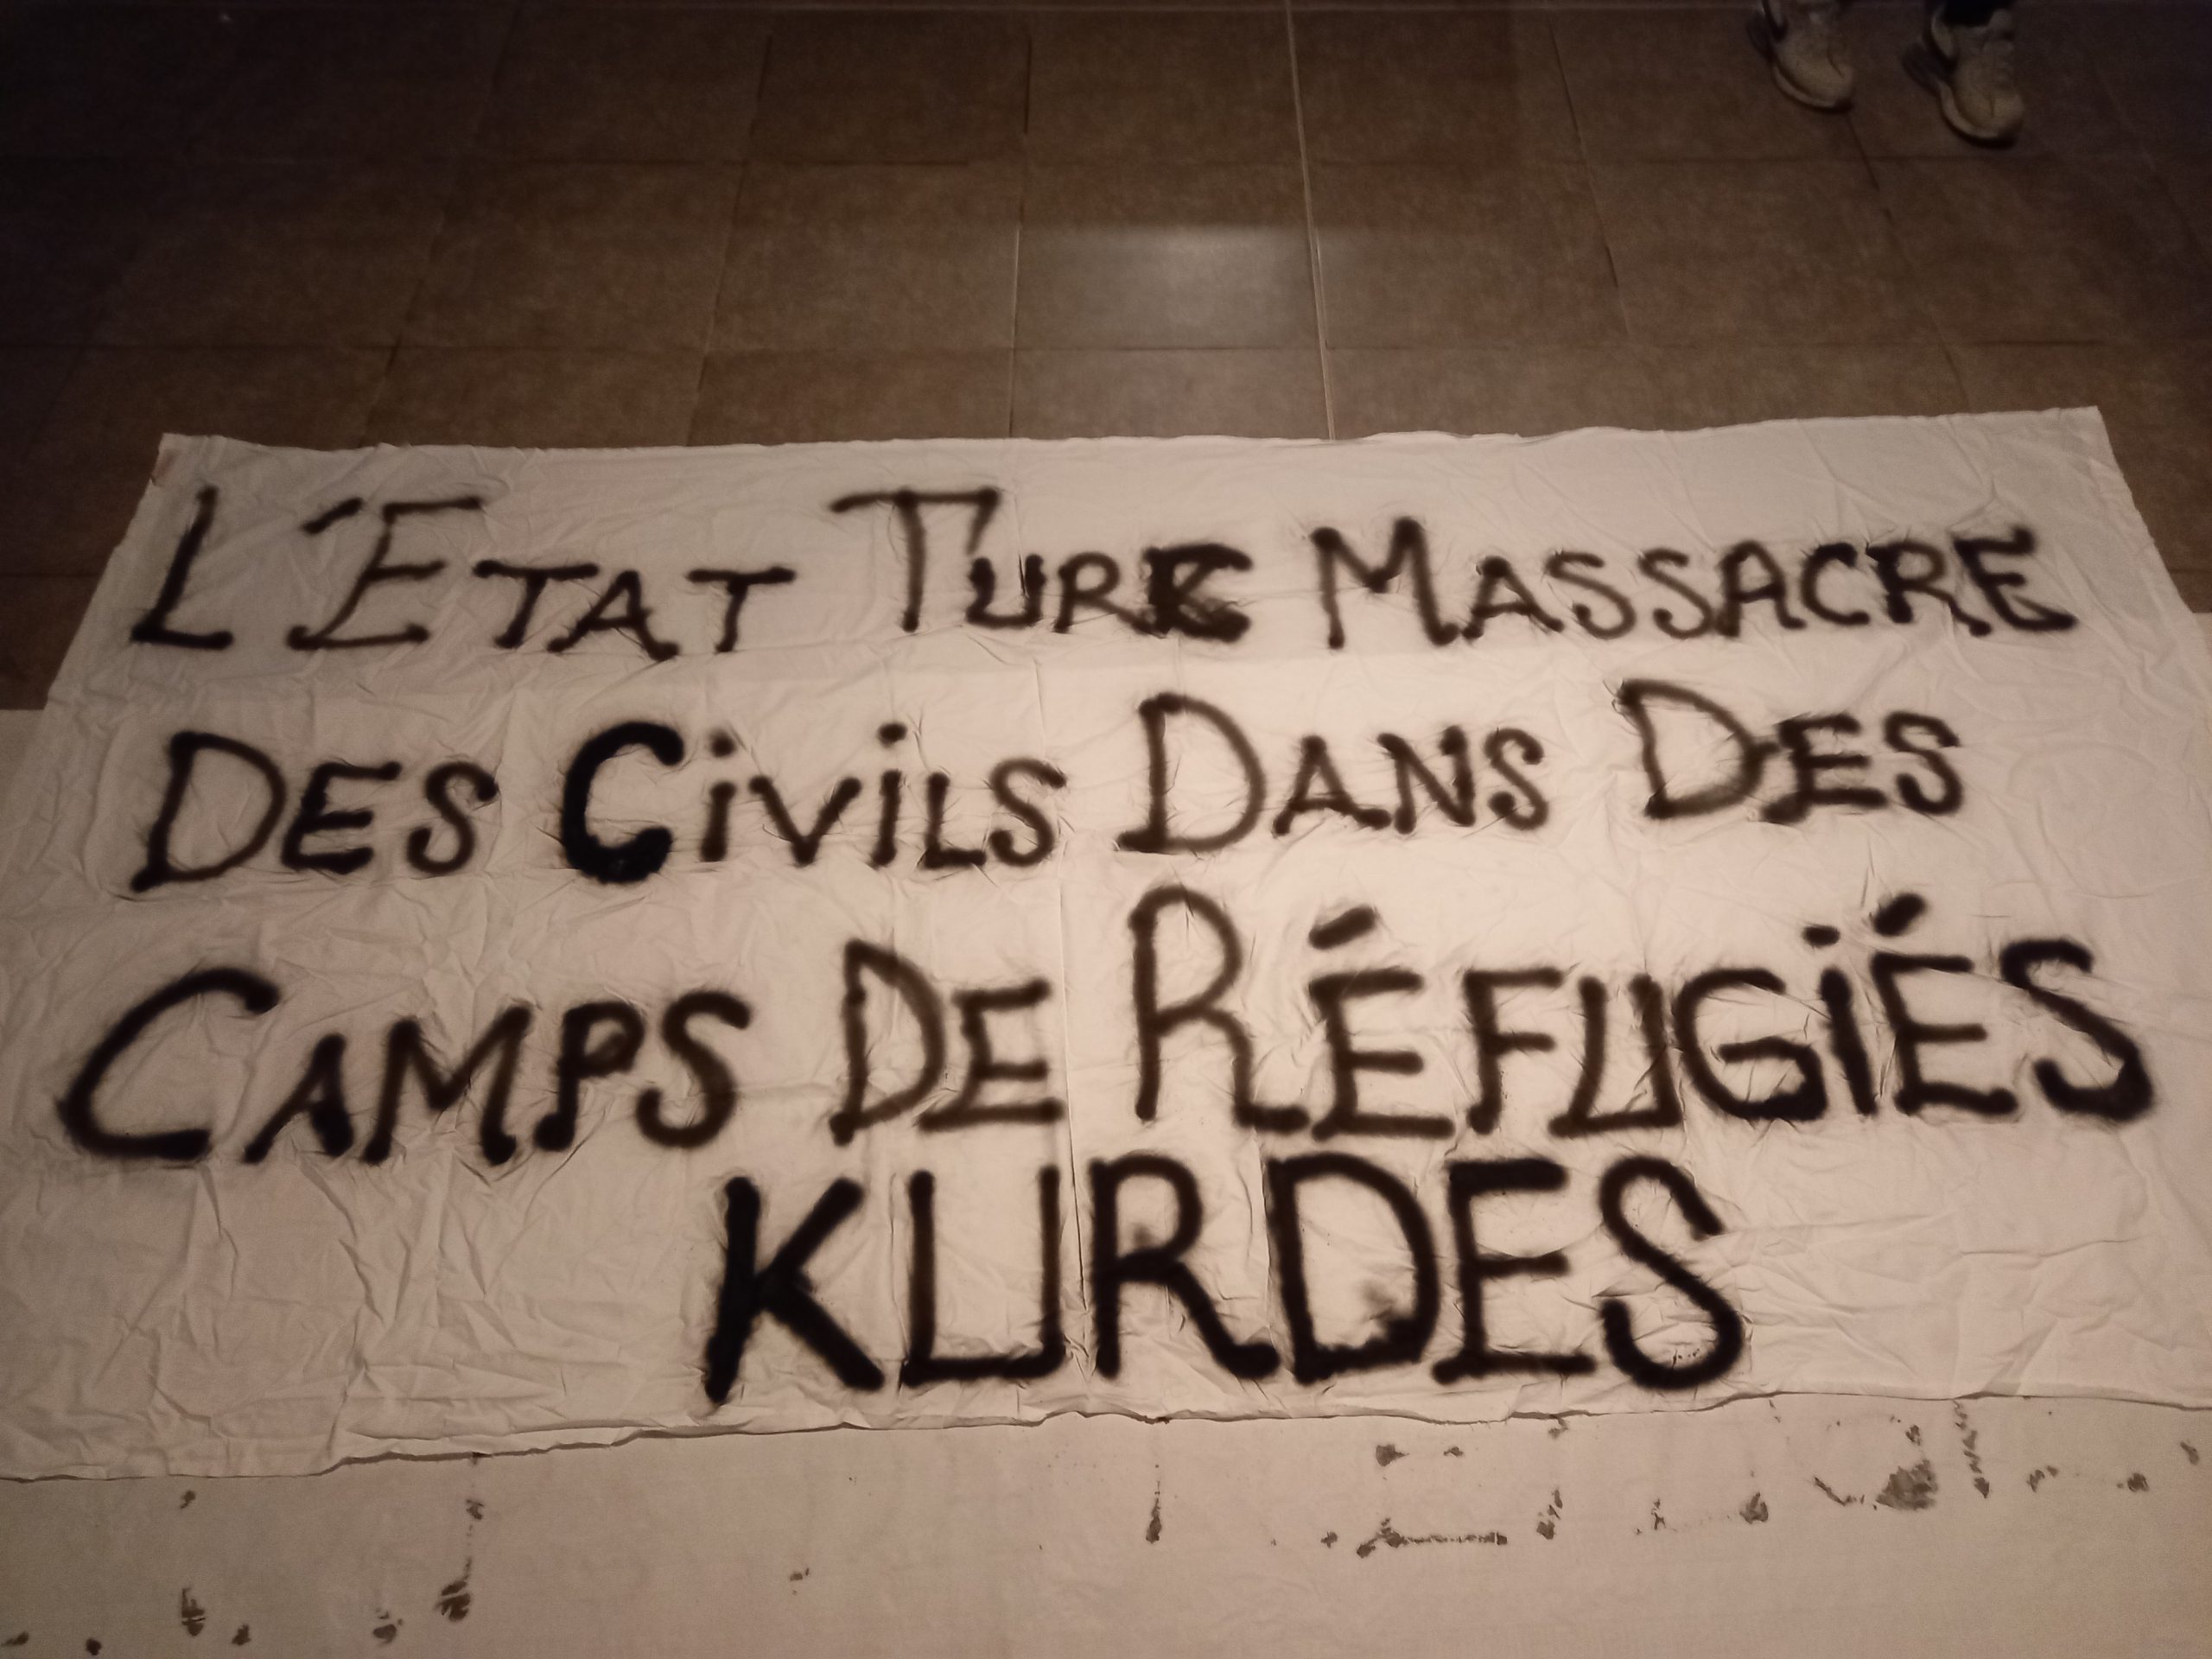 L'ÉTAT TURC MASSACRE
DES CiViLS DANS DES
CAMPS DE RÉFUGiÉS
KURDES